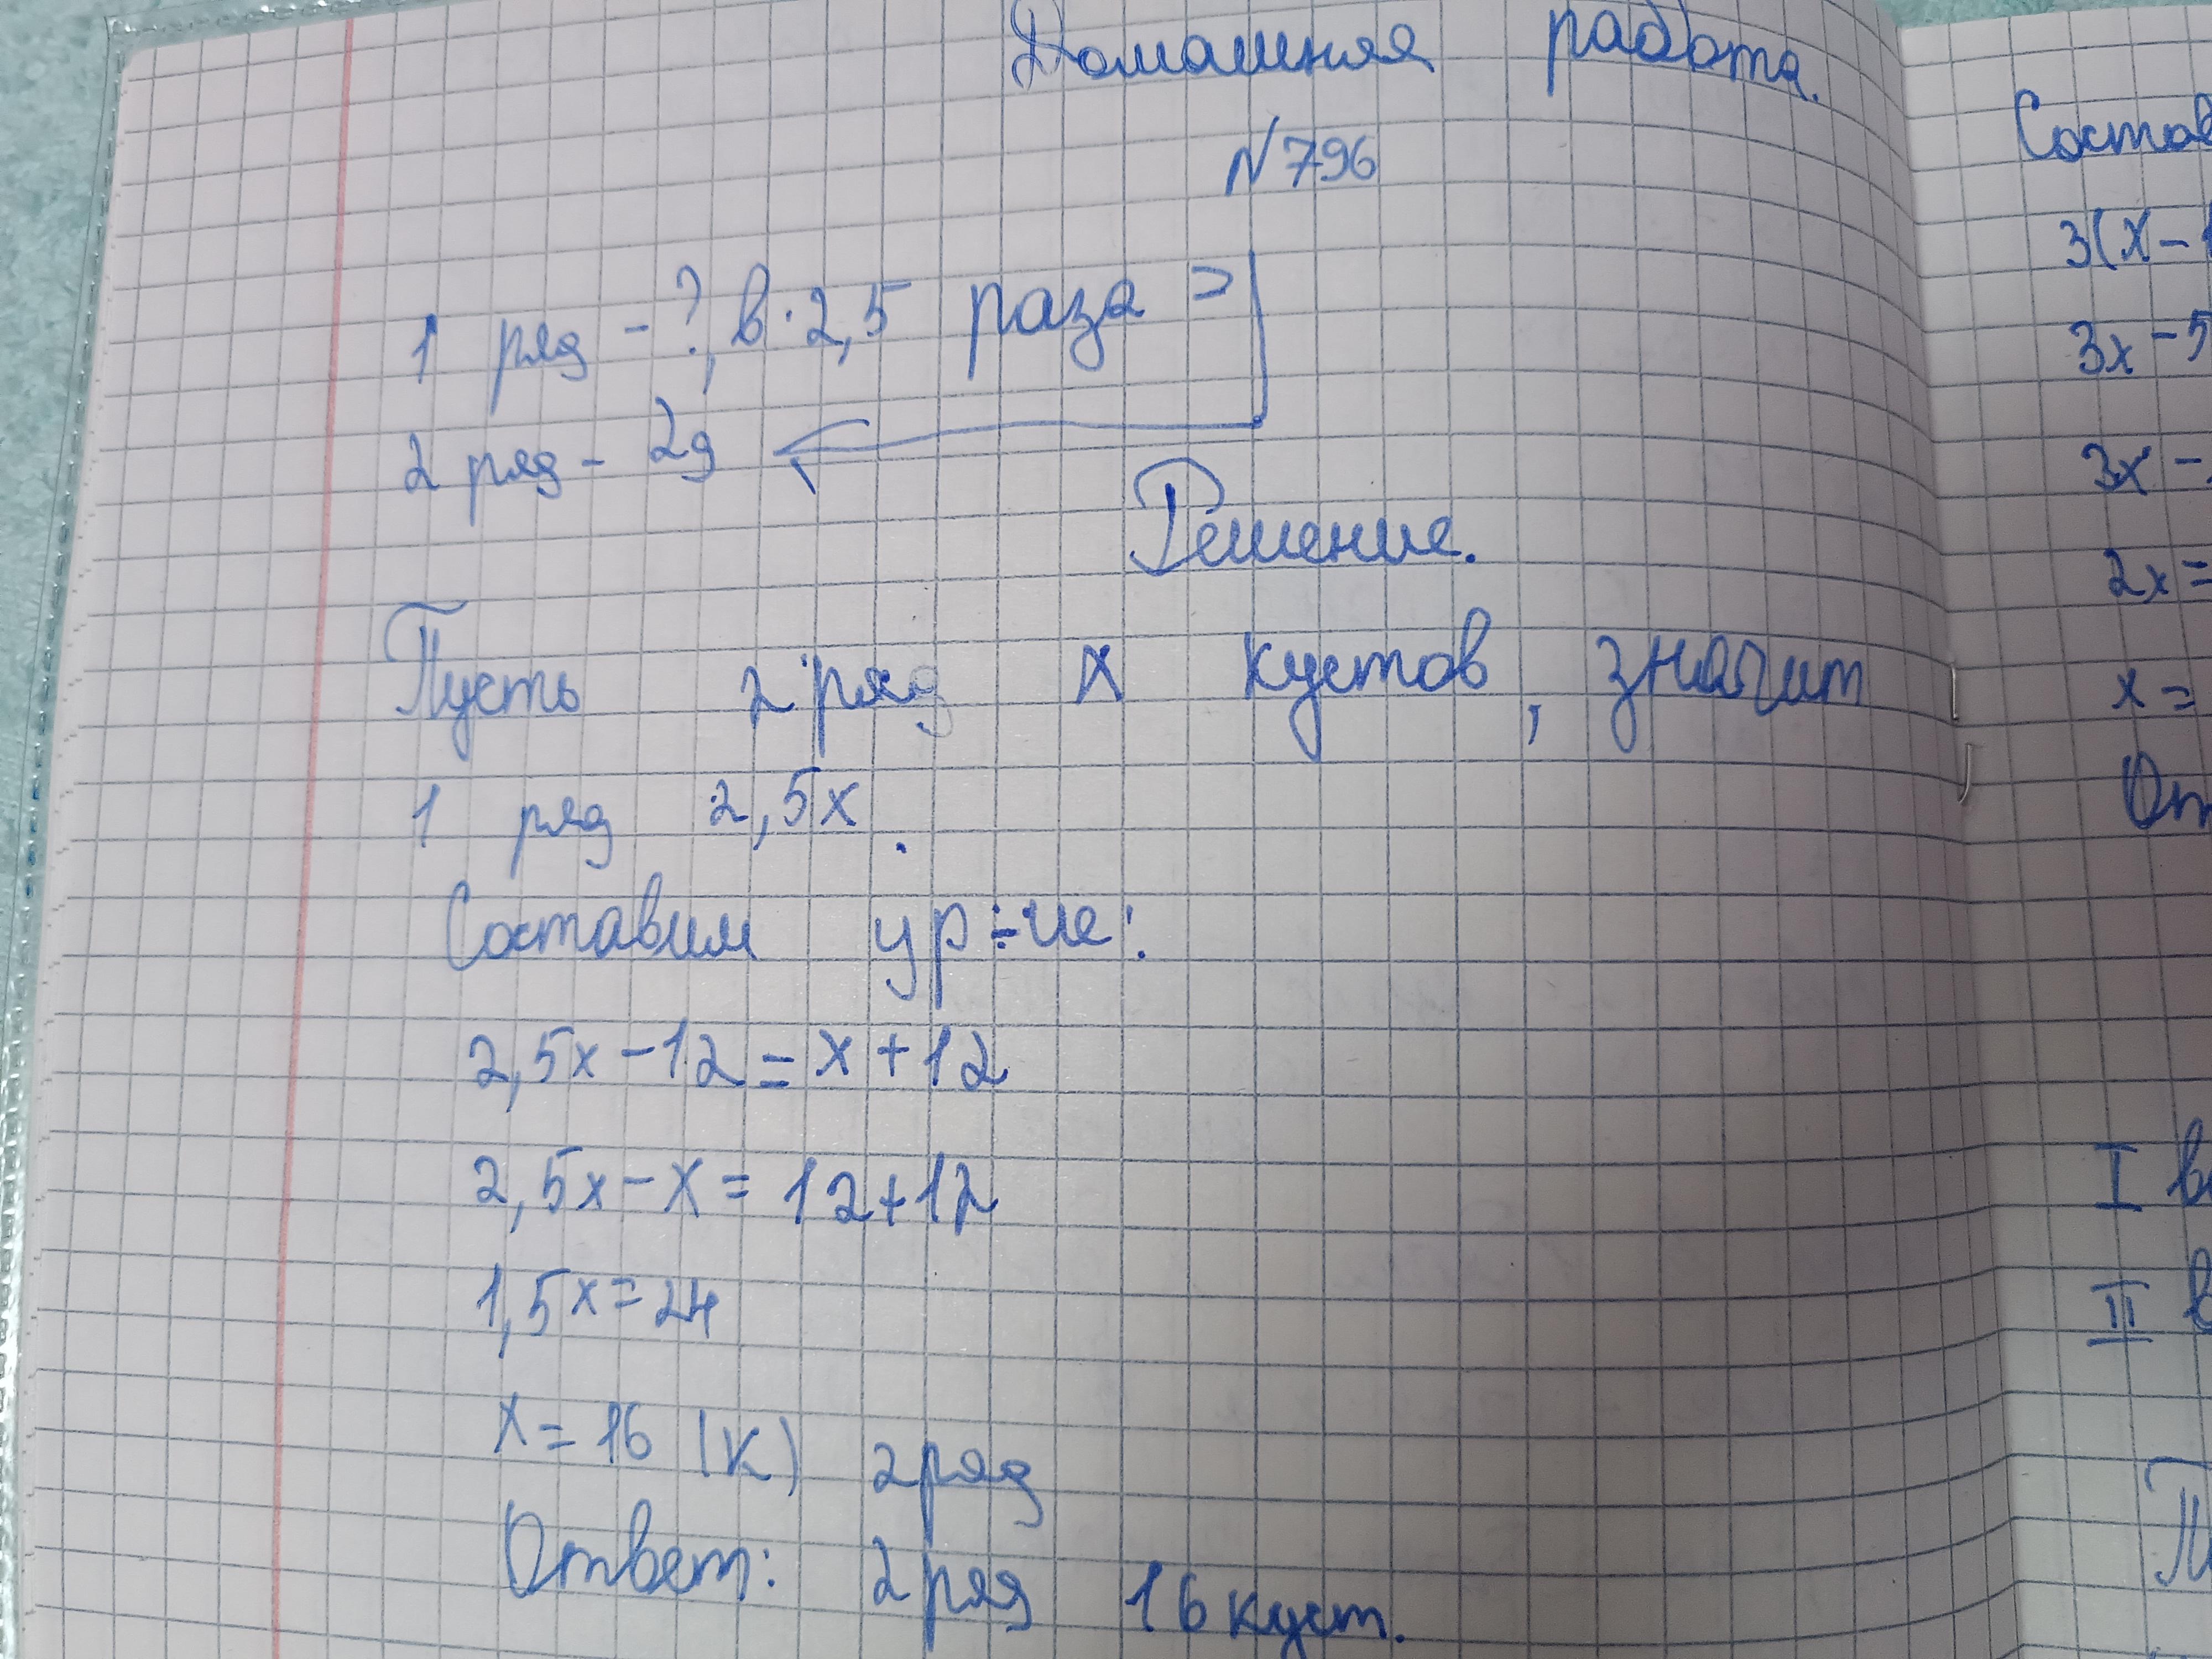 Домашняя работа.
№796
1 ряд - ?, в 2,5 раза >
2 ряд - 2д
Решение.
Пусть 2 ряд х кустов, значит
1 ряд 2,5х.
Составим ур-ие:
2,5х - 12 = х + 12
2,5х - х = 12 + 12
1,5х = 24
х = 16 (к) 2 ряд
Ответ: 2 ряд 16 куст.
3(х -
3х - 5
3х -
2х =
х =
I в
II в